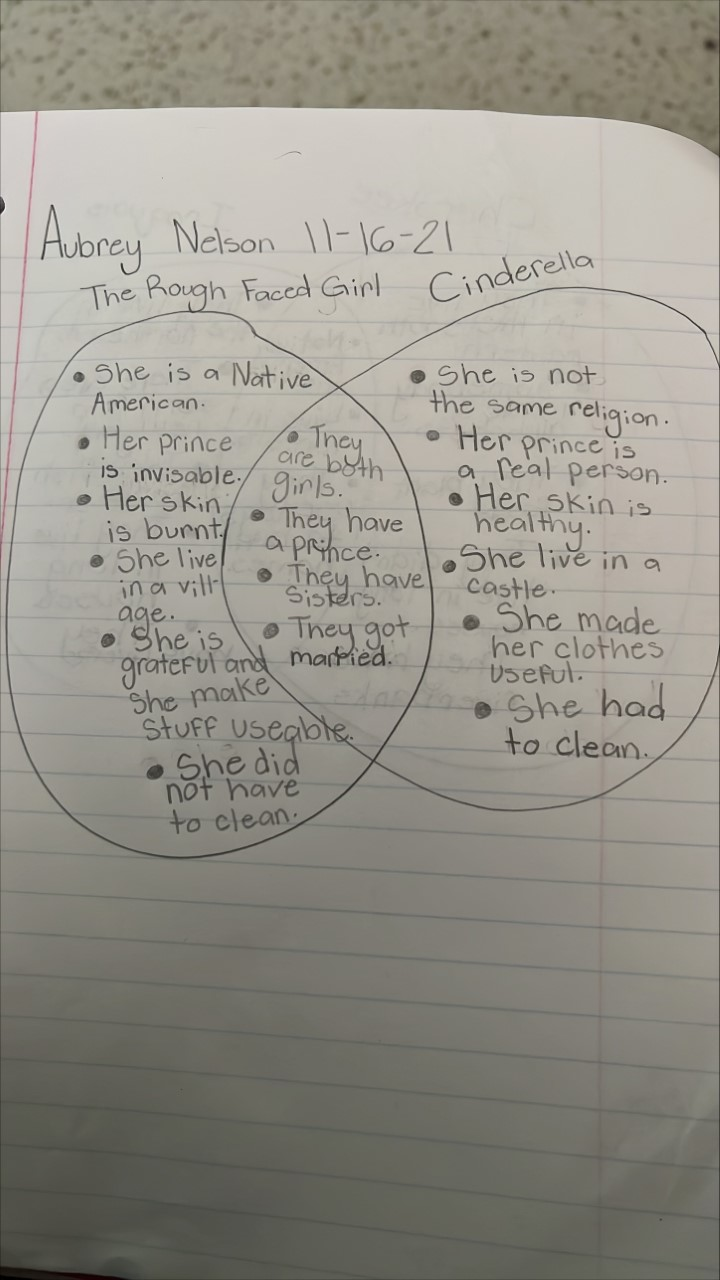 Aubrey Nelson 11-16-21
The Rough Faced Girl
Cinderella
• She is a Native
American.
• Her prince
is invisable.
• Her skin
is burnt.
• She live
in a vill-
age.
• She is
grateful and
She make
Stuff useable.
• She did
not have
to clean.
• They
are both
girls.
• They have
a prince.
• They have
Sisters.
• They got
married.
• She is not
the same religion.
• Her prince is
a real person.
• Her skin is
healthy.
• She live in a
castle.
• She made
her clothes
useful.
• She had
to clean.